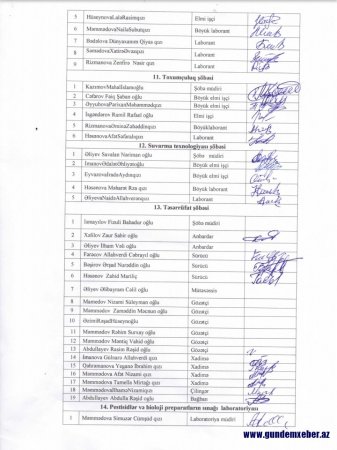 5 HüseynovaLaləRasimqızı Elmi işçi
6 MəmmədovaNailəSabutqızı Böyük laborant
7 Bədəlova Dünyaxanım Qiyas qızı Laborant
8 SəmədovaXatirəƏvəzqızı Laborant
9 Rizmanova Zenfira Nəsir qızı Laborant
11. Toxumçuluq şöbəsi
1 KazımovMahalİslamoğlu Şöbə müdiri
2 Cəfərov Faiq Şaban oğlu Böyük elmi işçi
3 ƏyyubovaPərixanMəhəmmədqızı Böyük elmi işçi
4 İsgəndərov Ramil Rafael oğlu Elmi işçi
5 RizmanovaƏminəZahəddinqızı Böyüklaborant
6 HəsənovaAfətSəfəralıqızı Laborant
12. Suvarma texnologiyası şöbəsi
1 Əliyev Savalan Nəriman oğlu Şöbə müdiri
2 İmanovƏdalətƏhliyəoğlu Böyük elmi işçi
3 EyvazovaİradəAydınqızı Böyük elmi işçi
4 Həsənova Məhərət Rza qızı Böyük laborant
5 ƏliyevaNaidəAllahverənqızı Laborant
13. Təsərrüfat şöbəsi
1 İsmayılov Fizuli Bahadur oğlu Şöbə müdiri
2 Xəlilov Zaur Sabir oğlu Anbardar
3 Əliyev İlham Vəli oğlu Anbardar
4 Fərəcov Allahverdi Cəbrayıl oğlu Sürücü
5 Bəşirov Ərşad Nurəddin oğlu Sürücü
6 Həsənov Zahid Məriliç Sürücü
7 Əliyev Ələbayram Cəlil oğlu Mütəxəssis
8 Məmədov Nizami Süleyman oğlu Gözətçi
9 Məmmədov Zaməddin Məcnun oğlu Gözətçi
10 ƏzimiRəşadHüseynoğlu Gözətçi
11 Məmmədov Rəhim Surxay oğlu Gözətçi
12 Məmmədov Mantiq Vahid oğlu Gözətçi
13 Abdullayev Rasim Rəşid oğlu Gözətçi
14 İmanova Gülnarə Allahverdi qızı Xadimə
15 Qəhrəmanova Yeganə İbrahim qızı Xadimə
16 Məmmədova Afət Nizami qızı Xadimə
17 Məmmədova Tamella Mirtağı qızı Xadimə
18 MəmmədovİlhaməNizamiqızı Çilingər
19 Abdullayev Abdulla Rəşid oğlu Bağban
14. Pestisidlər və bioloji preparatların sınağı laboratoriyası
1 Məmmədova Simuzər Cümşüd qızı Laboratoriya müdiri
www.gundemxeber.az